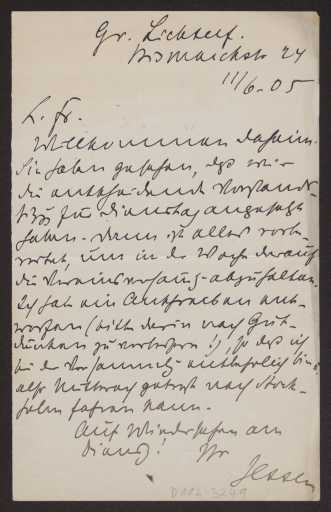 Gr. Lichterf.
Bismarckstr 24
11/6.05
L. Fr.
Willkommen daheim.
Sie haben gesehen, daß wir
die entscheidende Vorstands-
sitzg für Dienstag angesetzt
haben. Dann ist alles vorbe-
reitet, um in der Woche darauf
die Vereinsversammlg abzuhalten.
Ich hab ein Anschreiben ent-
worfen (bitte darin nach Gut-
dünken zu verbessern), so daß ich
bei der Versammlg entbehrlich bin u.
also Mittwoch getrost nach Stock-
holm fahren kann.
Auf Wiedersehen am
Dienstg! Ihr
Jessen
D002-3249